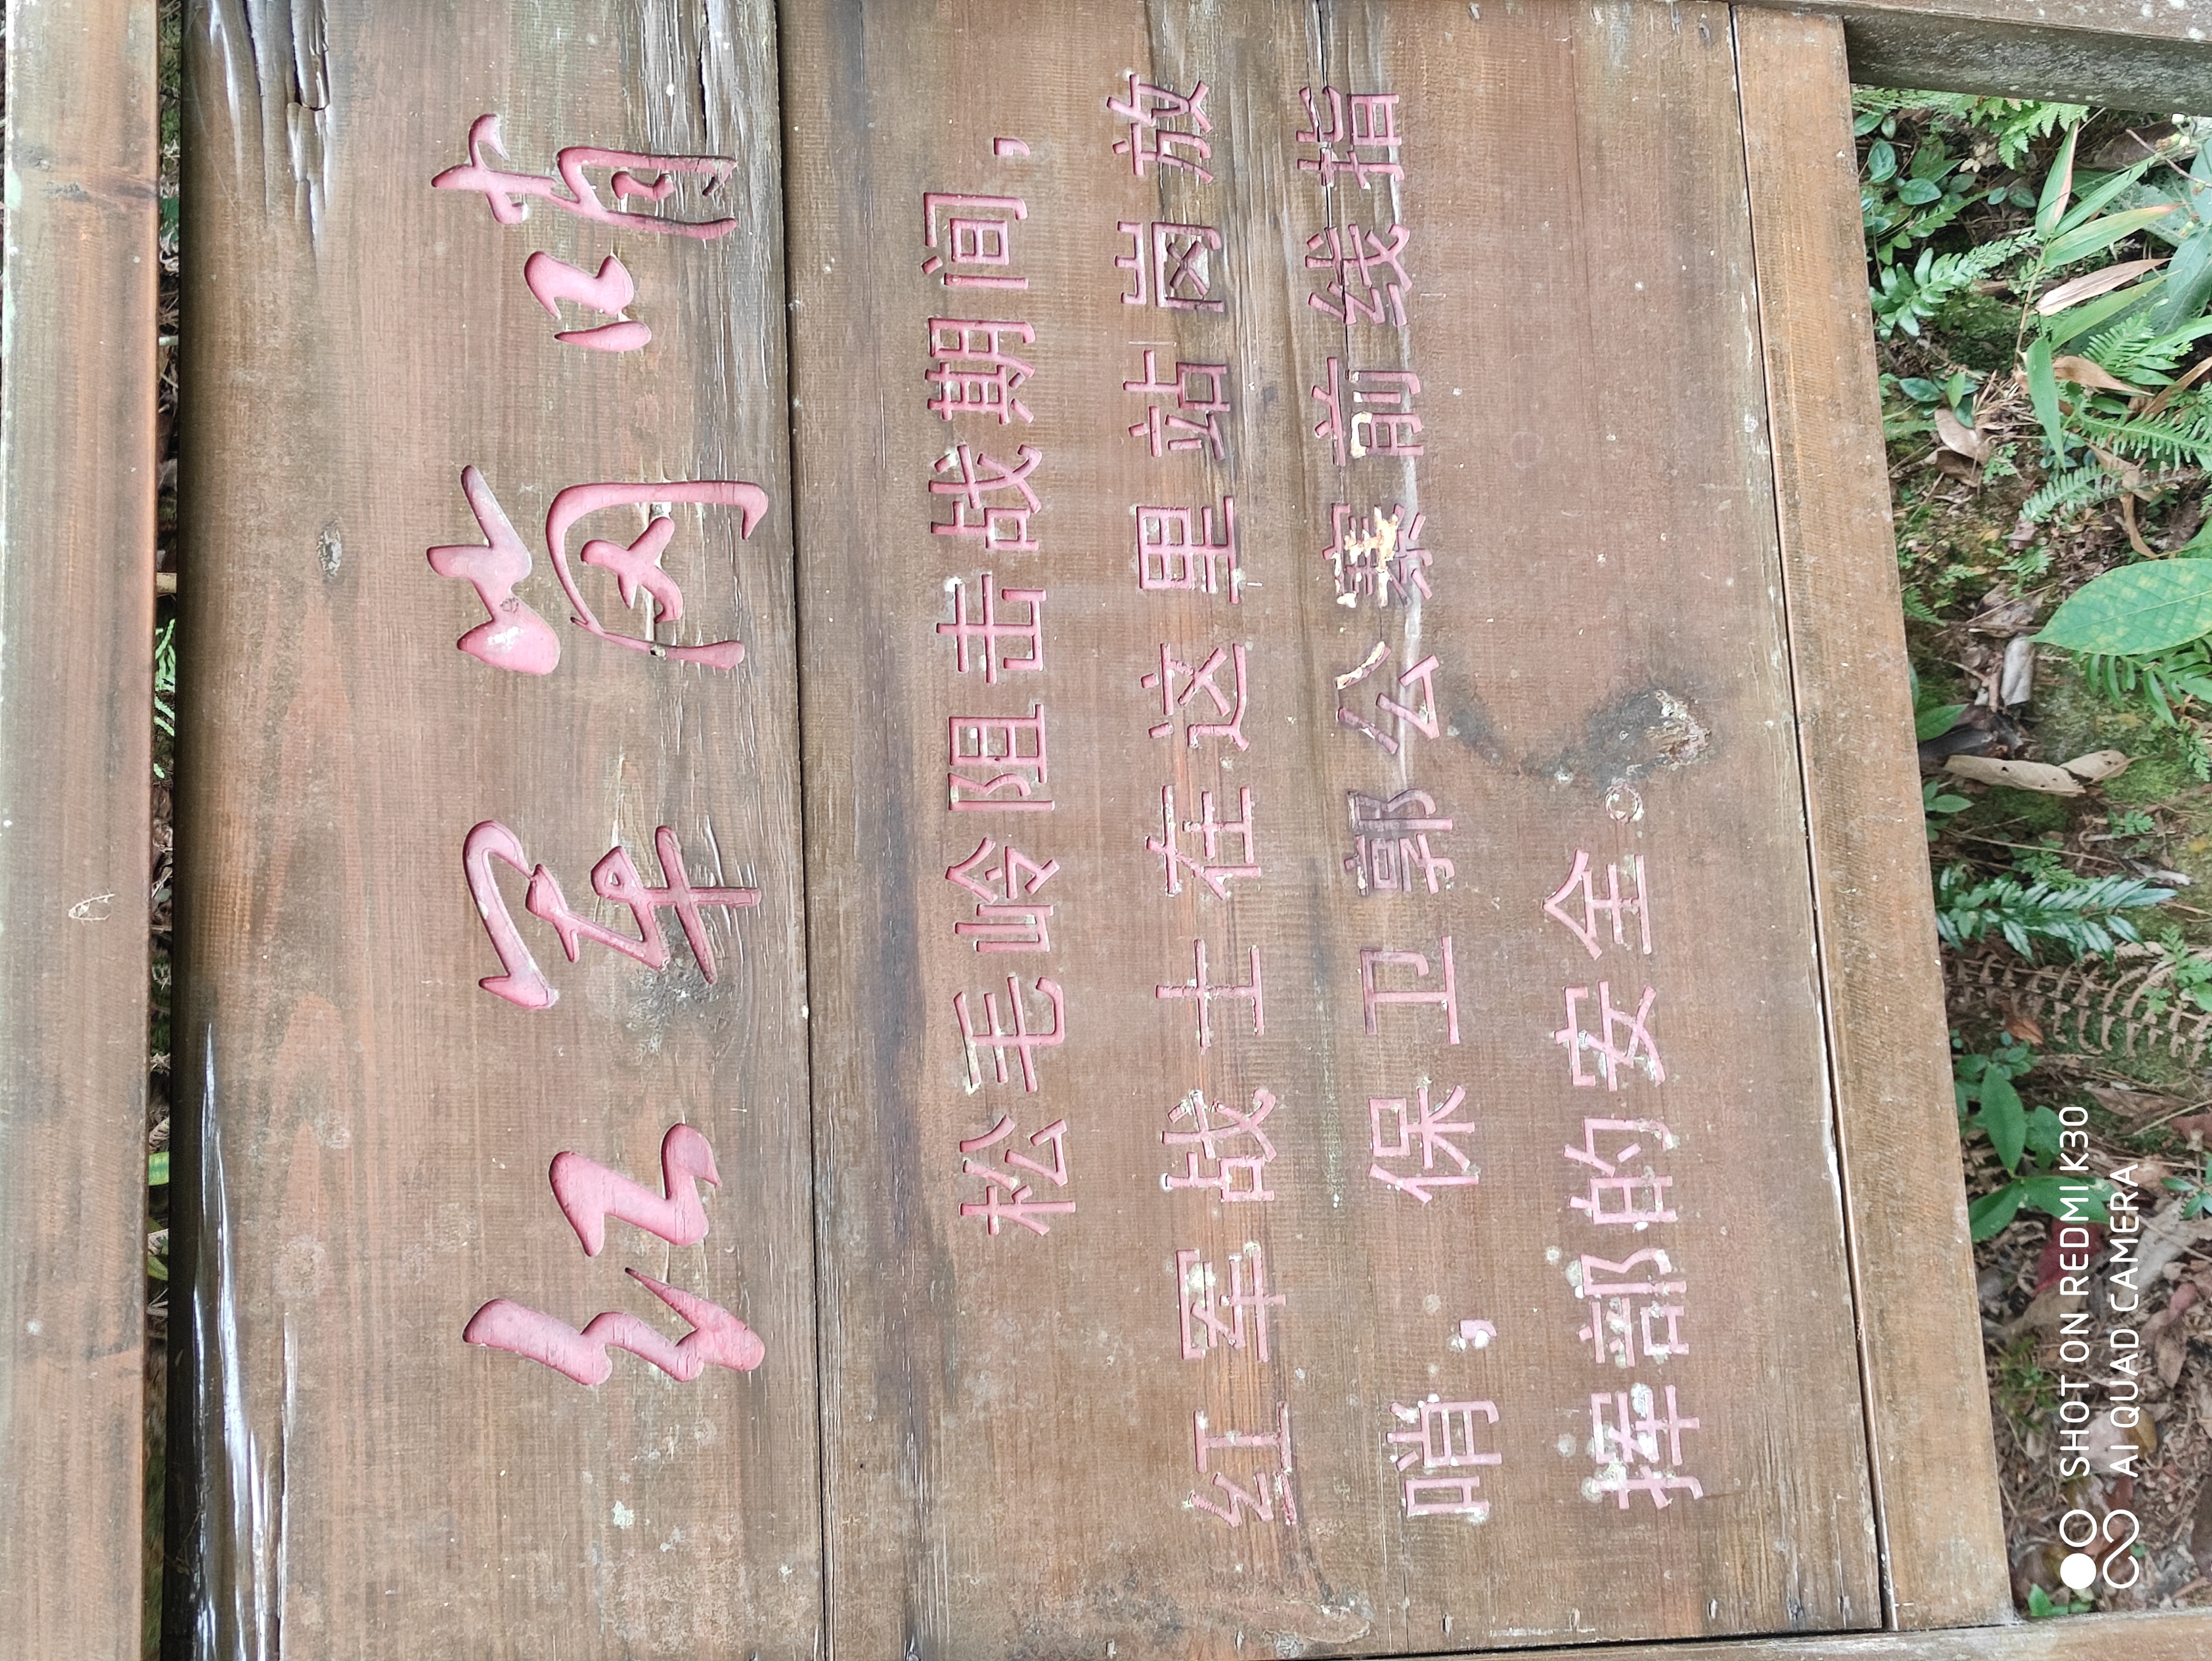 红军岗哨
松毛岭阻击战期间，
红军战士在这里站岗放
哨，保卫郭公寨前线指
挥部的安全。
SHOT ON REDMI K30
AI QUAD CAMERA